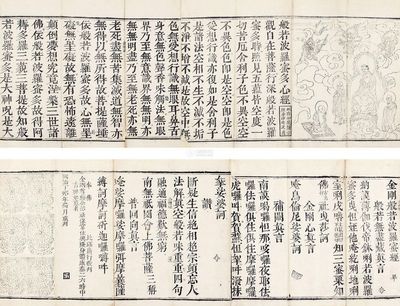 般若波羅蜜多心經
觀自在菩薩行深般若波羅
蜜多時照見五蘊皆空度一
切苦厄舍利子色不異空空
不異色色即是空空即是色
受想行識亦復如是舍利子
是諸法空相不生不滅不垢
不淨不增不減是故空中無
色無受想行識無眼耳鼻舌
身意無色聲香味觸法無眼
界乃至無意識界無無明亦
無無明盡乃至無老死亦無
老死盡無苦集滅道無智亦
無得以無所得故菩提薩埵
依般若波羅蜜多故心無罣
礙無罣礙故無有恐怖遠離
顛倒夢想究竟涅槃三世諸
佛依般若波羅蜜多故得阿
耨多羅三藐三菩提故知般
若波羅蜜多是大神呪是大
金剛般若波羅蜜經
般若無盡藏真言
金剛心真言
唵烏倫尼娑婆訶
補闕真言
南謨喝囉怛那哆囉夜耶佉
囉佉囉俱住俱住摩囉摩囉
虎囉吽賀賀蘇怛拏吽潑抹
拏娑婆訶
讚
斷疑生信絕相超宗頓忘人
法解真空般若味重重四句
融通福德歎無窮
南無祇園會上佛菩薩三稱
普回向真言